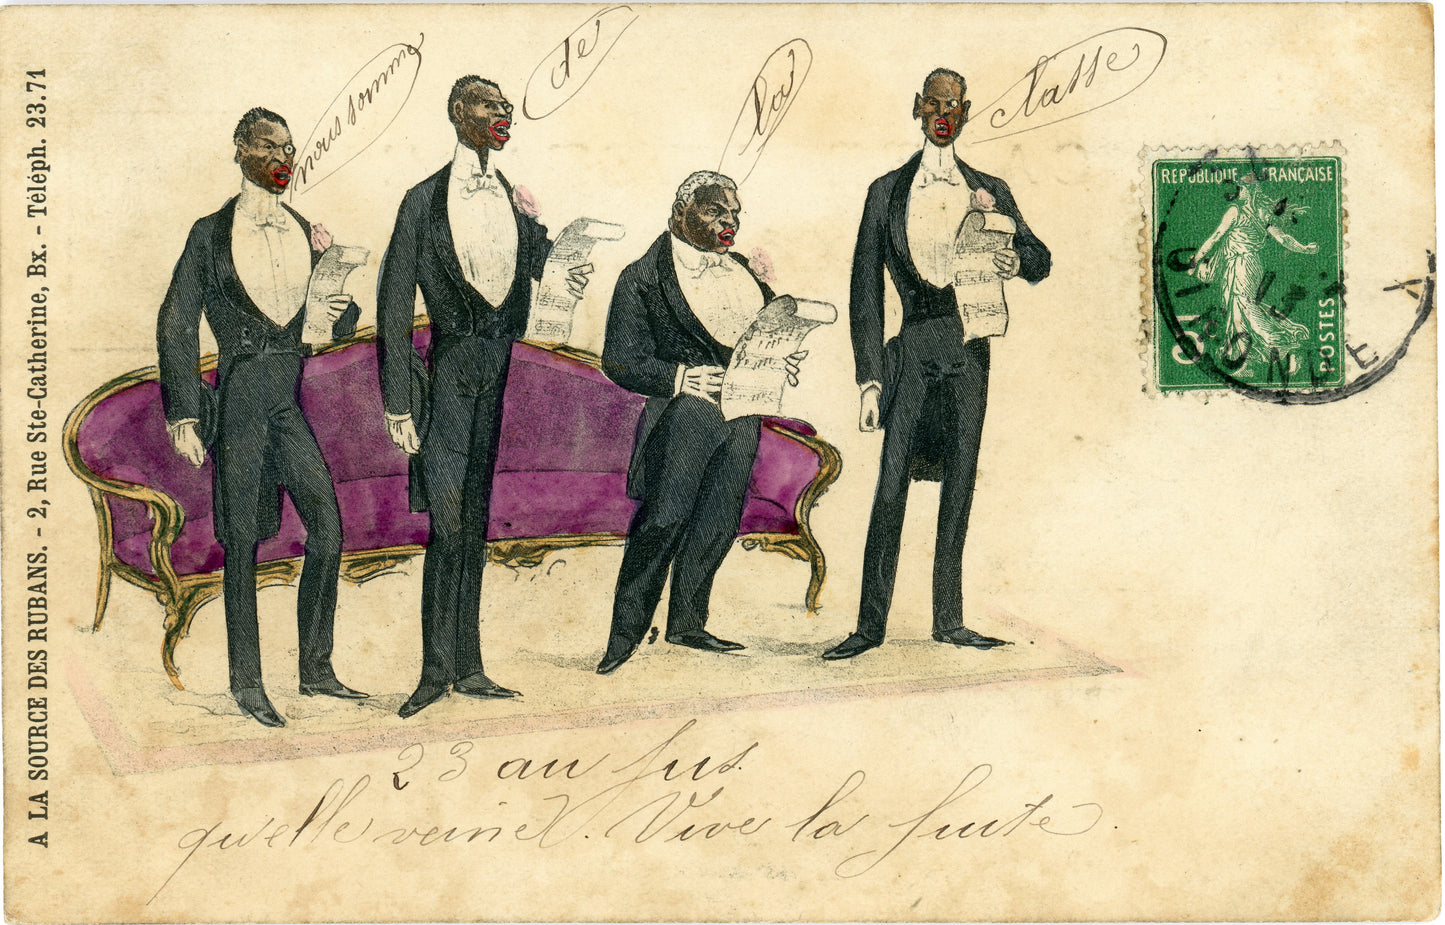 A LA SOURCE DES RUBANS. - 2, Rue Ste-Catherine, Bx. - Téléph. 23.71
nous somme
de
la
classe
REPUBLIQUE FRANÇAISE
POSTES
5
GIRONDE
23 au jus.
quelle veine. Vive la fuite.